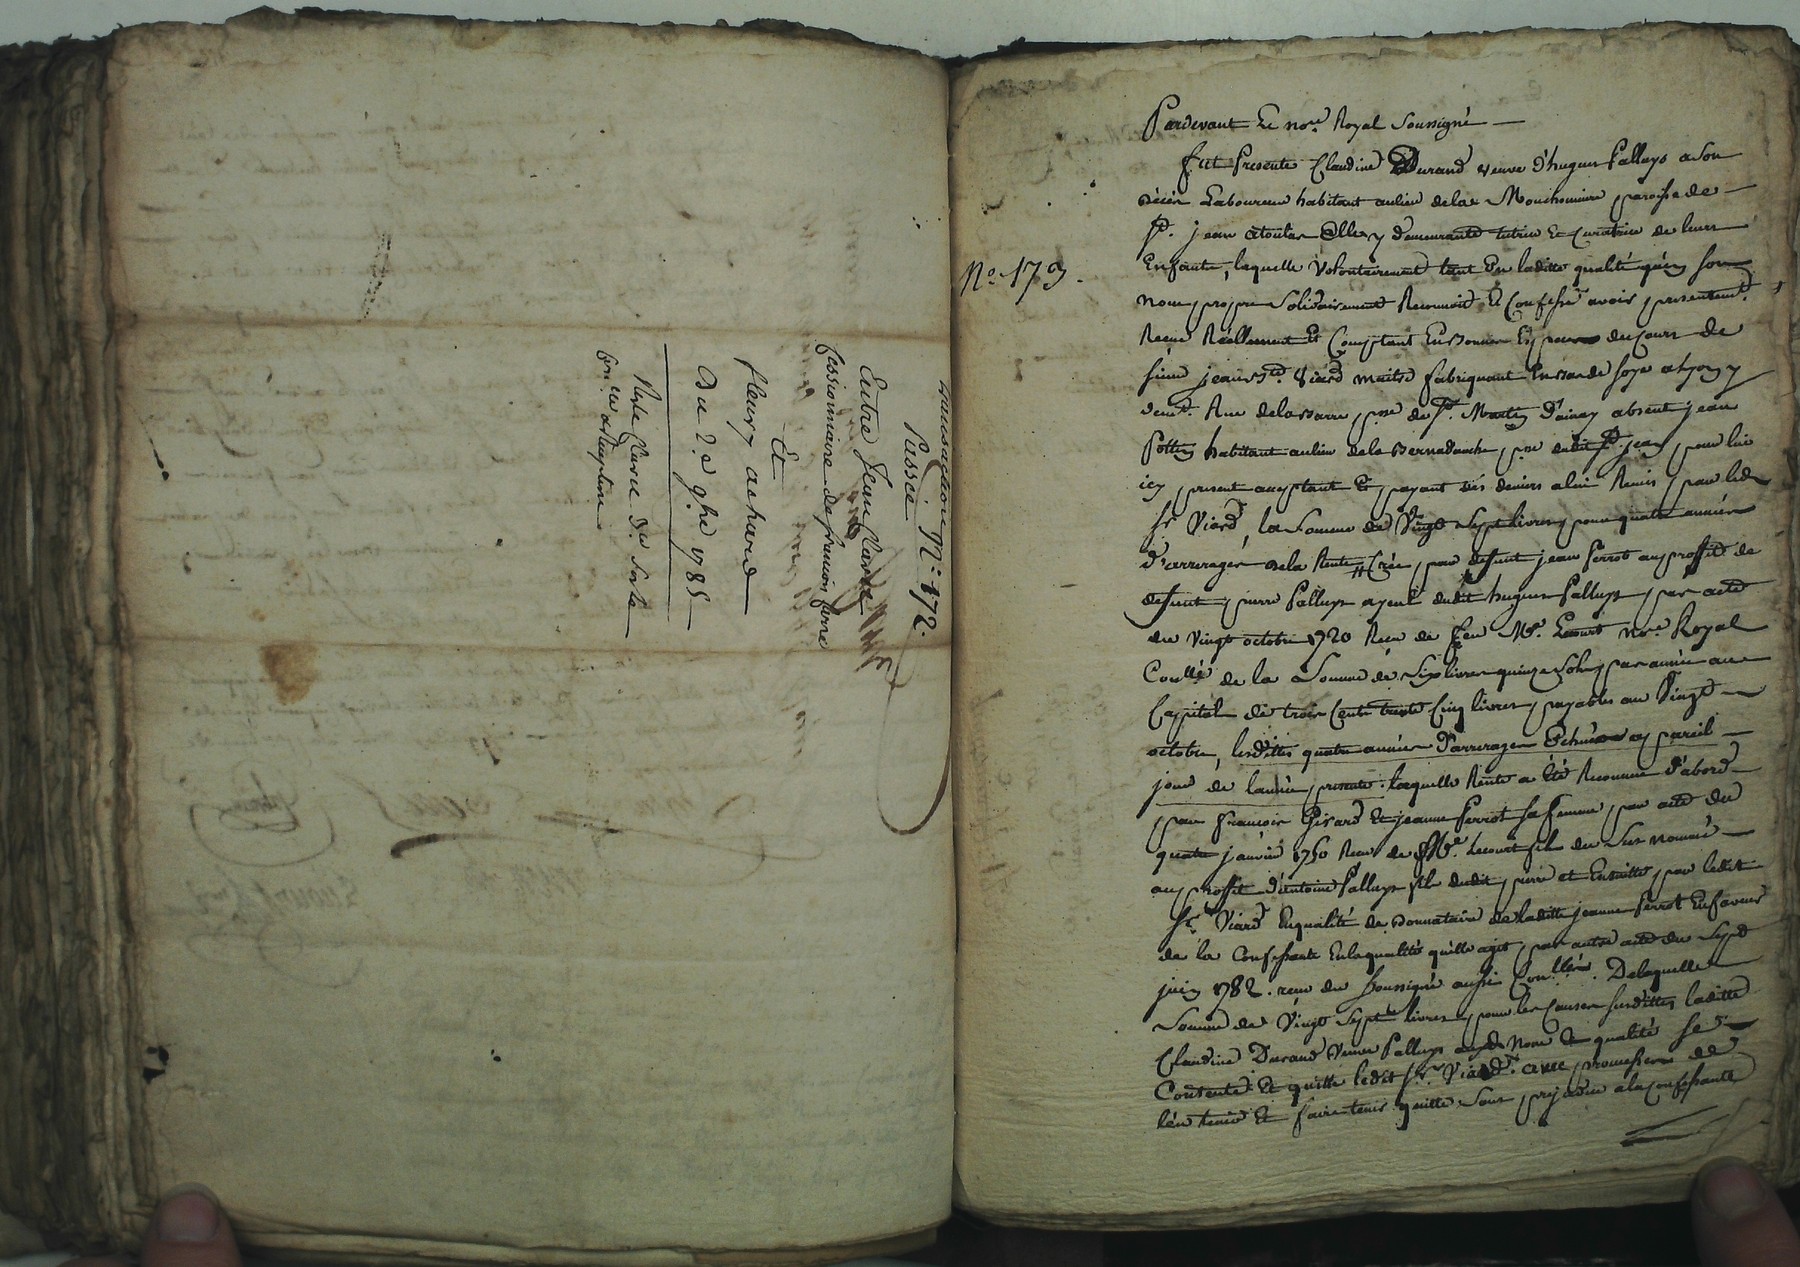 transaction N.° 172.
Passée
Entre Jean Claude
fessionnaire de françois ferre
Et
fleury achard
Du 2.e 9.bre 1785
Pardevant Le no.re Royal Soussigné
fut Presente Claudine Durand veuve d'hugues Palluys a son
décès Laboureur habitant au lieu dela Mouchonniere paroisse de
S.t jean atoulas Elle y demeurante tutrice Et Curatrice de leurs
Enfants, laquelle Volontairement tant En laditte qualité qu'en son
N.° 173.
nom propre Solidairement Reconnoit Et Confesse avoir presentem.t
Receu Réellement Et Comptant En bonnes Especes du cours de
sieur jean Viard maitre fabriquant En soye a Lyon y
dem.t Rue dela Barre p.sse de S.t Martin d'ainay absent jean
Pottin habitant au lieu dela Bernadanche p.sse dudit S.t jean pour lui
icy present acceptant Et payant des deniers a lui Remis par led.
S.r Viard, la Somme de Vingt Sept livres pour quatre années
d'arrerages dela Rente Crée par deffunt jean Perrot au proffit de
deffunt pierre Palluys ayeul dudit hugues Palluys par acte
du Vingt octobre 1720 Receu de feu M.e Lecourt no.re Royal
Coullé de la Somme de Six livres quinze Sols par année au
Capital de trois Cents trente Cinq livres payables au Vingt
octobre, lesdittes quatre années d'arrerages Echues a pareil
jour de l'année presente. laquelle Rente a Eté Reconnue d'abord
par francois Girard Et jeanne Perrot sa femme par acte du
quatre janvier 1750 Receu de M.e Lecourt fils du Sus nommé
au proffit d'antoine Palluys fils dudit pierre et Ensuitte par ledit
S.r Viard En qualité de Donnataire de laditte jeanne Perrot En faveur
de la Confessante En la qualité qu'elle agit par autre acte du Sept
juin 1782. receu du Soussigné aussi Coullé. De laquelle
Somme de Vingt Sept livres pour les Causes susdittes laditte
Claudine Durand Veuve Palluys auxd. Nom Et qualité se
Contente Et quitte ledit S.r Viard. avec promesses de
l'en tenir Et faire tenir quitte Sans prejudice a la Confessante